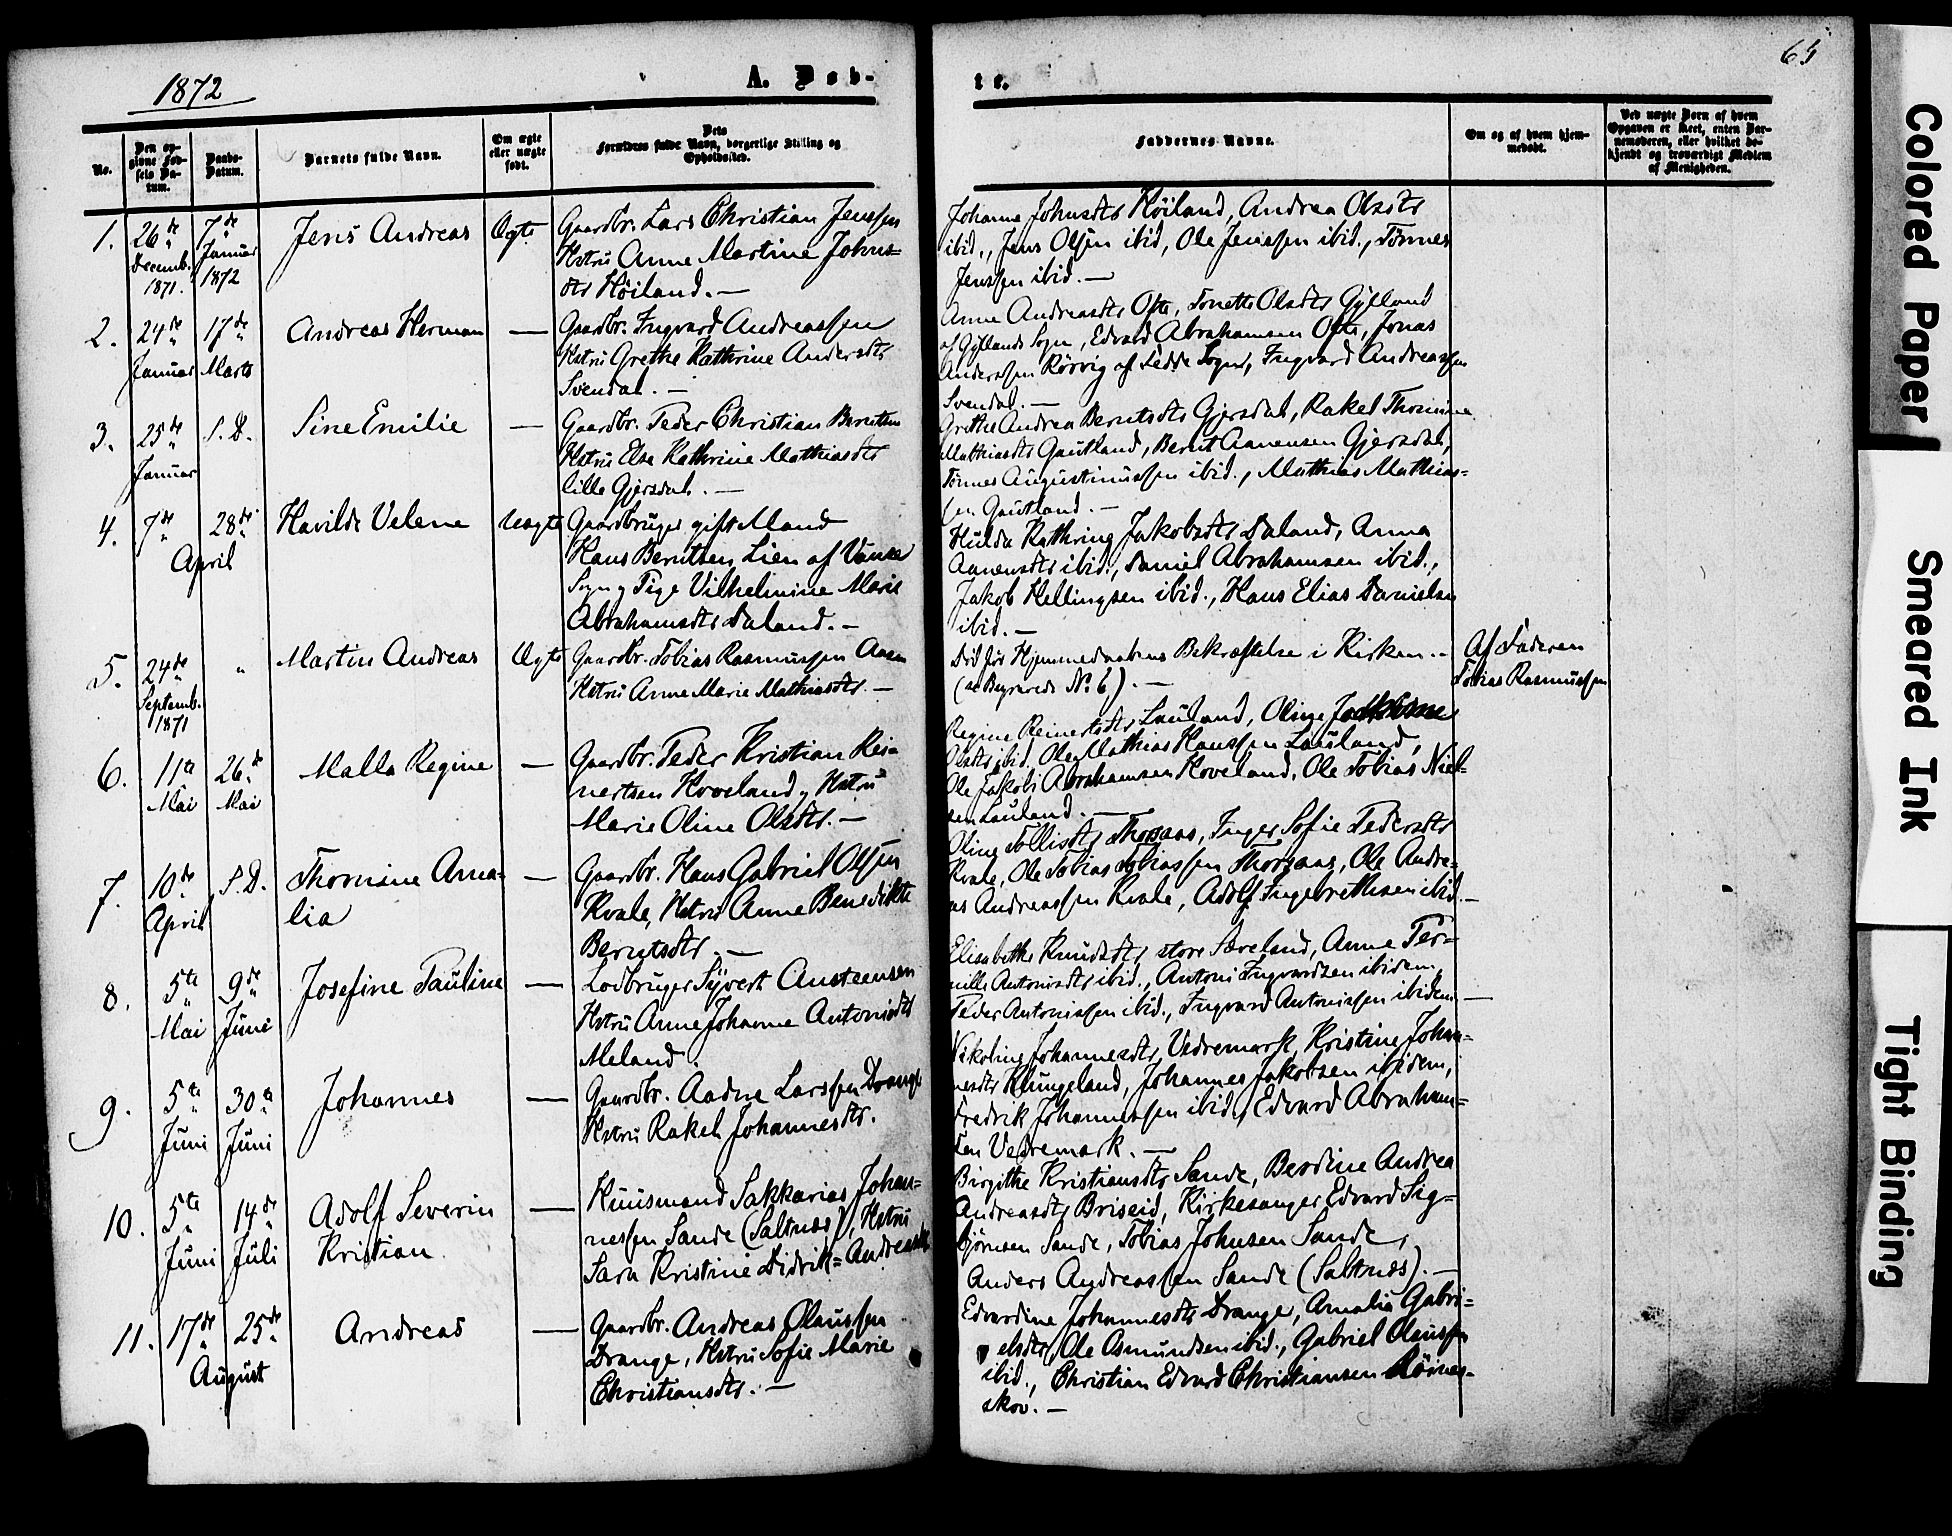 1872
A. Døb-
te.
65
No.
Den op-
givne Fød-
sels Da-
tum.
Daabs-
Datum.
Barnets fulde Navn.
Om ægte
eller uægte
født.
Dets
Forældres fulde Navn, borgerlige Stilling og
Opholdssted.
Faddernes Navne.
Om og af hvem hjem-
medøbt.
Ved uægte Børn af hvem
Opgaven er skeet, enten Bar-
nemoderen, eller hvilket be-
kjendt og troværdigt Medlem
af Menigheden.
1.
26de
Decemb.
1871.
7de
Januar
1872
Jens Andreas
Ægte
Gaardbr. Lars Christian Jenssen
Hstrü Anne Martine Johns-
dtr Høiland. —
Johanne Johnsdtr Høiland, Andrea Olsdtr
ibid., Jens Olsen ibid, Ole Jenssen ibid., Tønnes
Jenssen ibid. —
2.
24de
Januar
17de
Marts
Andreas Herman
—
Gaardbr. Ingvard Andreassen
Hstrü Grethe Kathrine Andersdtr
Svendal. —
Anne Andreasdtr Ofte, Tonette Olsdtr Gylland
af Gyllands Sogn, Edvard Abrahamsen Ofte, Jonas
Anderssen Rørvig af Fedde Sogn, Ingvard Andreassen
Svendal. —
3.
25de
Januar
S. D.
Sine Emilie
—
Gaardbr. Peder Christian Berntsen
Hstrü Else Kathrine Mathiasdtr
lille Gjersdal. —
Grethe Andrea Berntsdtr Gjersdal, Rakel Thomine
Mathiasdtr Gautland, Bernt Aanensen Gjersdal,
Tønnes Augustinussen ibid., Mathias Mathias-
sen Gautland. —
4.
7de
28de
April
Havilde Velene
Uægte
Gaardbrüger gift Mand
Hans Berntsen Lien af Vanse
Sogn og Pige Vilhelmine Marie
Abrahamsdtr Daland. —
Hulda Kathrine Jakobsdtr Daland, Anna
Aanensdtr ibid., Daniel Abrahamsen ibid.,
Jakob Hellingsen ibid., Hans Elias Danielsen
ibid. —
5.
24de
Septemb.
1871
"
Martin Andreas
Ægte
Gaardbr. Tobias Rasmussen Aasen
Hstrü Anne Marie Mathiasdtr. —
Død før Hjemmedaabens Bekræftelse i Kirken. —
(se Begravede No 6). —
Af Faderen
Tobias Rasmussen
6.
11te
Mai
26de
Mai
Malla Regine
—
Gaardbr. Peder Kristian Rei-
nertsen Hoveland og Hstrü
Marie Oline Olsdtr. —
Regine Reinertsdtr Lauland, Oline
Olsdtr ibid. Ole Mathias Hanssen Lauland,
Ole Jakob Abrahamsen Hoveland, Ole Tobias Niel-
sen Lauland. —
7.
10de
April
S. D.
Thomine Ama-
lia
—
Gaardbr. Hans Gabriel Olsen
Kvale, Hstrü Anne Benedikte
Berntsdtr. —
Oline Tollisdtr Thorsaas, Inger Sofie Pedersdtr
Kvale, Ole Tobias Tobiassen Thorsaas, Ole Andre-
as Andreassen Kvale, Adolf Ingebrethsen ibid. —
8.
5te
Mai
9de
Juni
Josefine Pauline
—
Lodbrüger Syvert Austeensen
Hstrü Anne Johanne Antonisdtr
Meland.
Elisabethe Knudsdtr store Sæveland, Anne Per-
nille Antonisdtr ibid., Antoni Ingvardsen ibidem,
Peder Antonissen ibid., Ingvard Antonissen ibidem —
9.
5te
Juni
30te
Juni
Johannes
—
Gaardbr. Aadne Larssen Drange
Hstrü Rakel Johannesdtr.
Johannesdtr Vedremark, Kristine Johan-
nesdtr Klungeland, Johannes Jakobsen ibidem,
Fredrik Johannessen ibid, Edvard Abraham-
sen Vedremark. —
10.
5te
Juni
14de
Juli
Adolf Severin
Kristian
—
Huusmand Sakkarias Johan-
nessen Sande (Saltnæs), Hstrü
Sara Kristine Didrik= Andreasdtr
Birgithe Kristiansdtr Sande, Berdine Andrea
Andreasdtr Briseid, Kirkesanger Edvard Sig-
bjørnsen Sande, Tobias Johnsen Sande,
Anders Andreassen Sande (Saltnæs). —
11.
17de
25de
August
Andreas
—
Gaardbr. Andreas Olaussen
Drange, Hstrü Sofie Marie
Christiansdtr. —
Edvardine Johannesdtr Drange, Amalia Gabri-
elsdtr, Ole Osmundsen ibid., Gabriel Olaussen
ibid., Christian Edvard Christiansen Røines-
skov. —
Colored Paper
Smeared Ink
Tight Binding